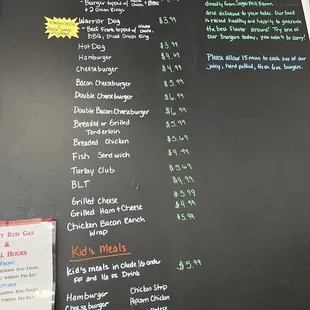 Burger topped w/
+ 2 Onion Rings
Warrior Dog $3.99
- Beef Frank topped w/
BBQ, Fried Onion Ring
Hot Dog $3.99
Hamburger $4.49
Cheeseburger $4.99
Bacon Cheeseburger $5.99
Double Cheeseburger $6.99
Double Bacon Cheeseburger
Breaded or Grilled $5.99
Tenderloin
Breaded Chicken $5.69
Fish Sandwich $4.99
Turkey Club $5.69
BLT $4.99
Grilled Cheese
Grilled Ham + Cheese $4.99
Chicken Bacon Ranch $5.99
Wrap
Kid's Meals
Kid's meals include 1/2 order $5.99
FF and 16 oz Drink
Hamburger Chicken Strip
Cheeseburger Popcorn Chicken
and delivered to your table. Our beef
is raised healthy and happily to guarantee
the best flavor around! Try one of
our burgers today, you won't be sorry!
Please allow 15 mins to cook one of our
juicy, hand pattied, fresh 6oz burgers.
Run Gas
&
Hours